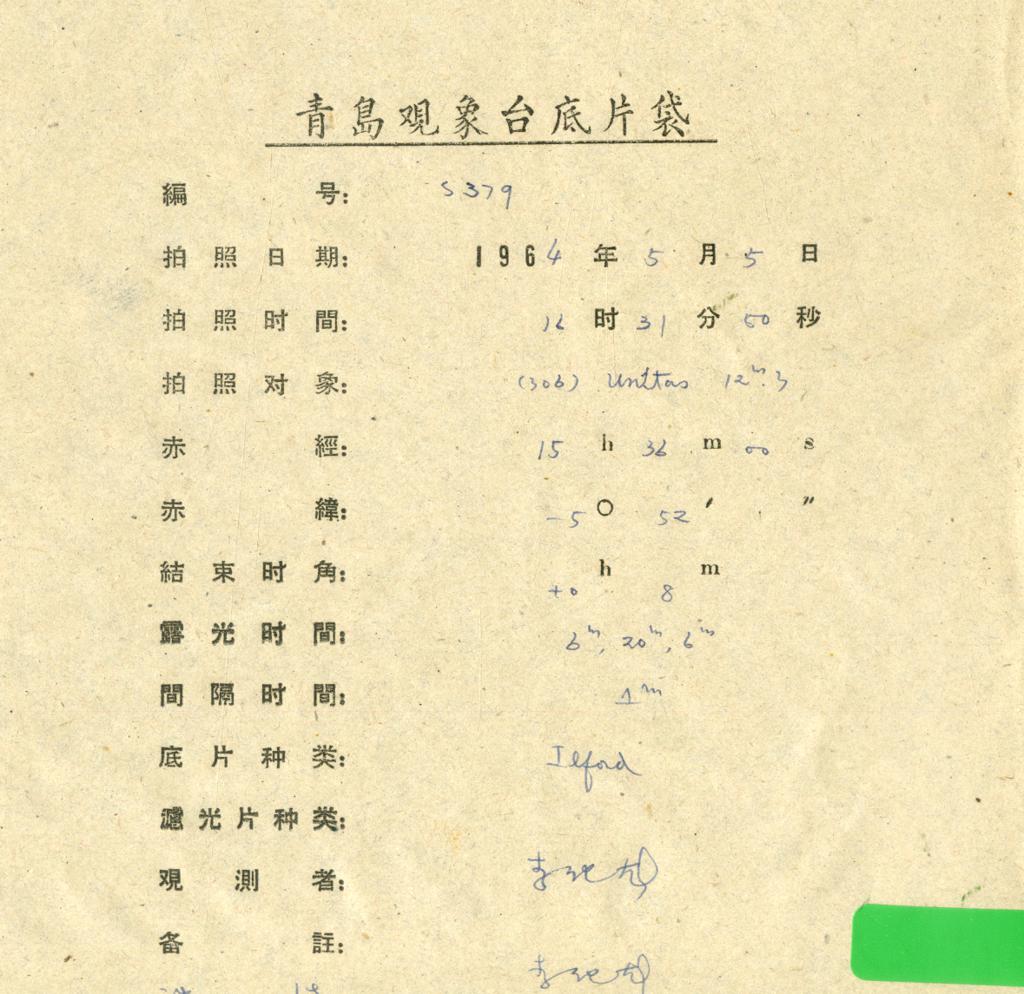 青島观象台底片袋
編号: S379
拍照日期: 1964年5月5日
拍照时間: 时31分50秒
拍照对象: (306) Unitas 12ᵐ.3
赤經: 15h 36m 00s
赤緯: -5° 52′ ″
結束时角: +0h 8m
露光时間: 6ᵐ, 20ᵐ, 6ᵐ
間隔时間: 1ᵐ
底片种类: Ilford
濾光片种类:
观測者: 李
备註:
李